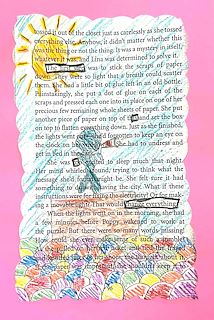 tossed it out of the closet just as carelessly as she tossed
everything else. Anyhow, it didn't matter whether it
was the thing or not the thing. It was a mystery in itself,
whatever it was. And Lina was determined to solve it.
was to stick the scraps of paper
They were so light that a breath could scatter
them. She had a little bit of glue left in an old bottle.
Handling it minutely, she put glue on each of
scraps and pressed each one into its place on one of her
precious few remaining whole sheets of paper. She put
another piece of paper on top of it and set the box
on top to keep everything down. Just as she finished,
the lights went out. She'd forgotten to keep an eye on
the clock on the wall, so she had to undress and
get in bed in the dark.
She was too excited to sleep much that night
Her mind whirled round, trying to think what the
message she'd found might be. She felt sure it had
something to do with the city. What if these
instructions were for fixing the electricity? Or for mak-
ing a movable light? That would change everything.
When the lights went on in the morning, she had
a few minutes before Poppy wakened to work at
But there were so many words missing!
How could she ever make sense of such a jumble?
As she pulled on her jacket and tied the frayed